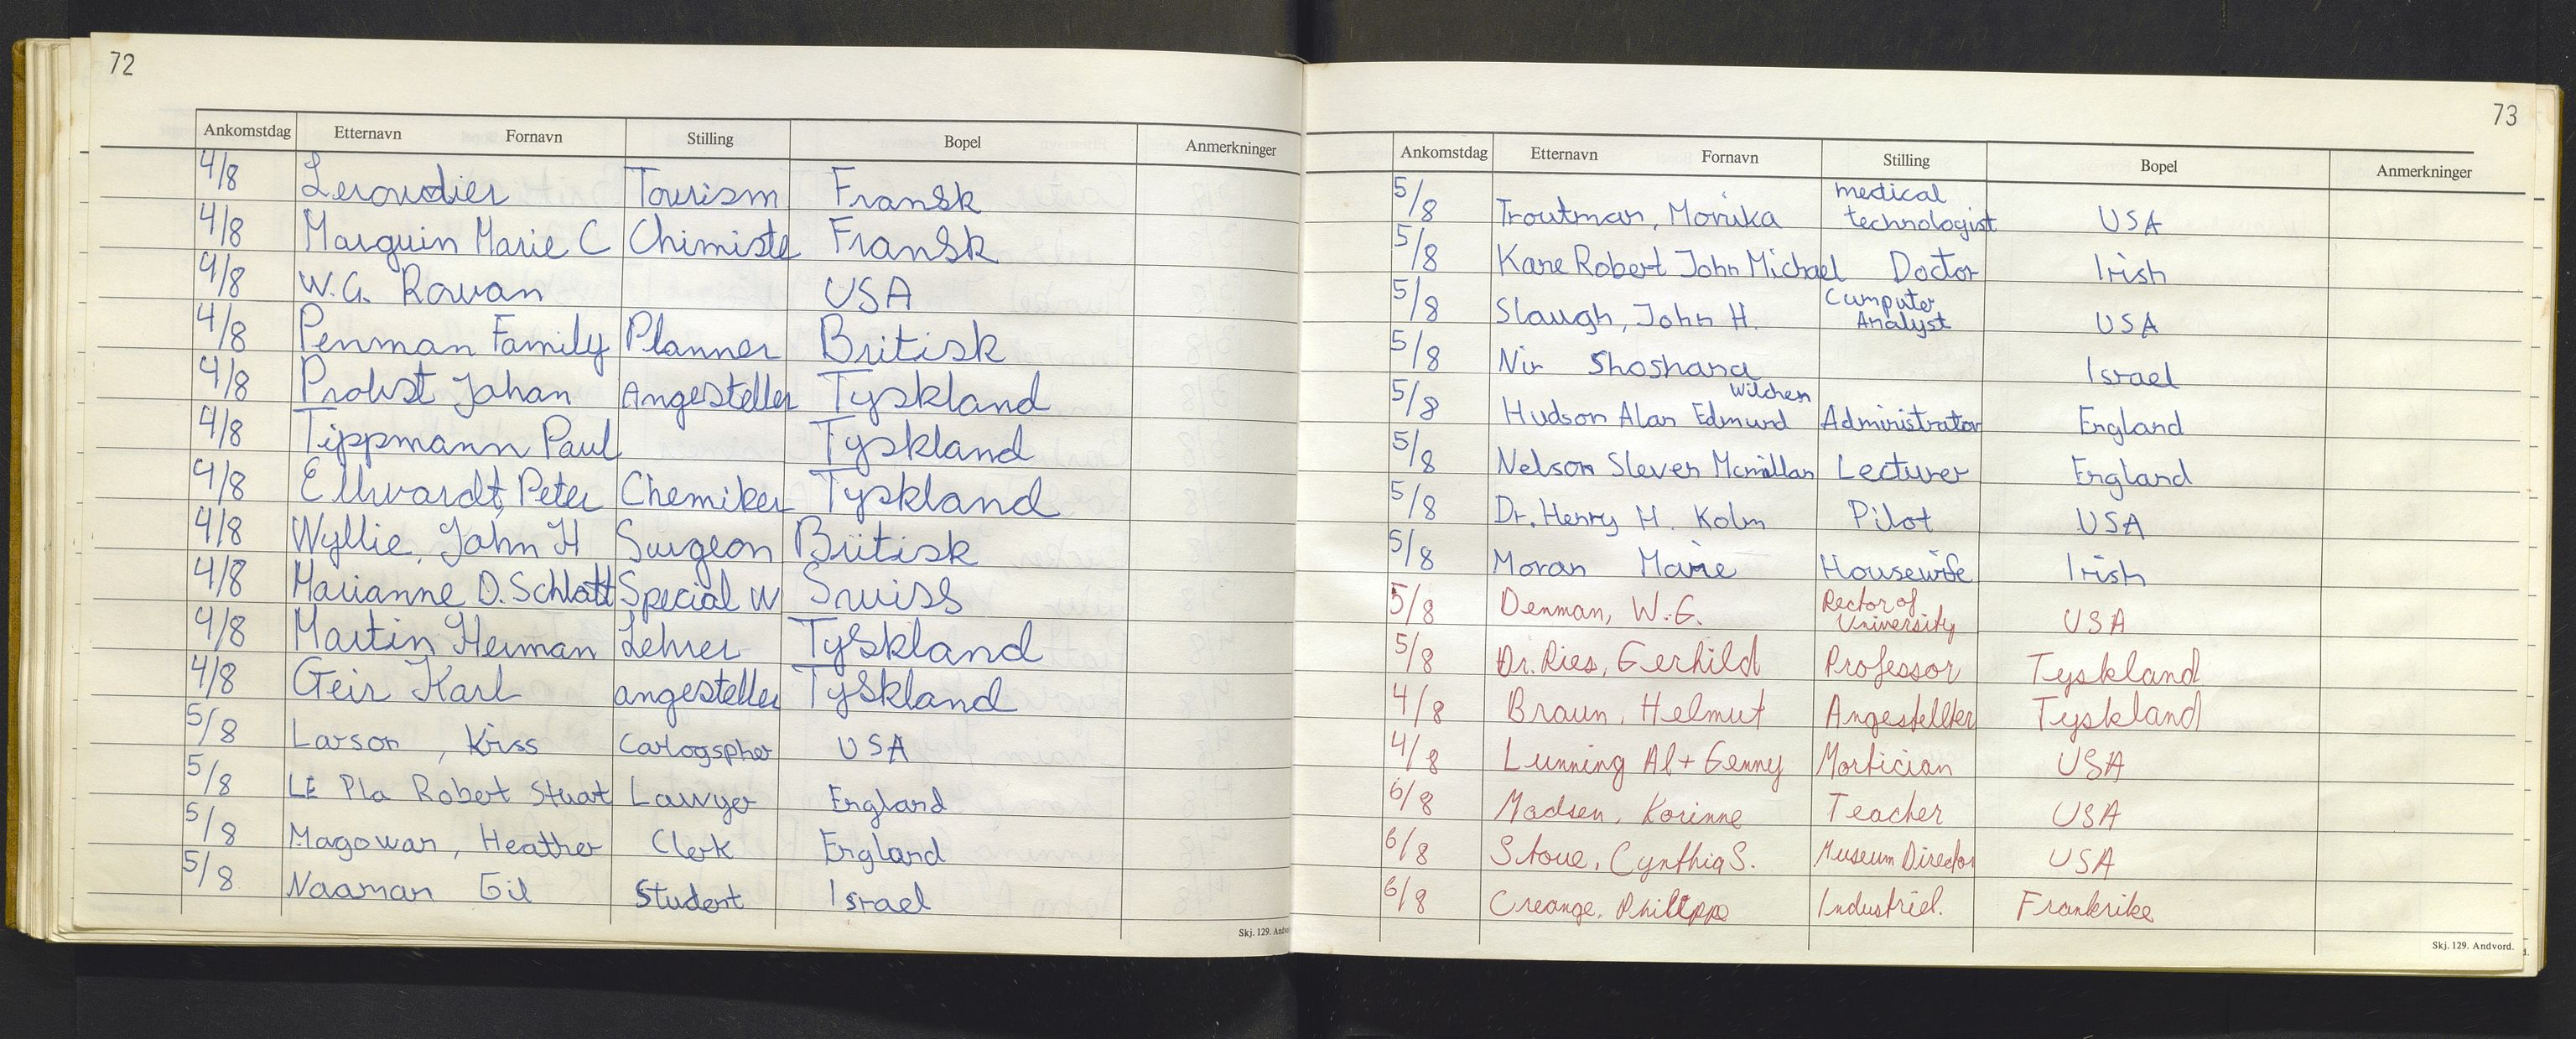 72
Ankomstdag Etternavn Fornavn Stilling Bopel Anmerkninger
4/8 Leroudier Tourism Fransk
4/8 Marguin Marie C Chimiste Fransk
4/8 W.G. Rowan USA
4/8 Penman Family Planner Britisk
4/8 Probst Johan Angesteller Tyskland
4/8 Tippmann Paul Tyskland
4/8 Peter Chemiker Tyskland
4/8 Wyllie, John H Surgeon Britisk
4/8 Marianne D. Schlatt Special W Swiss
4/8 Martin Herman Lehrer Tyskland
4/8 Geir Karl angesteller Tyskland
5/8 Larson, Kriss USA
5/8 LE Pla Robert Stuart Lawyer England
5/8 Magowan, Heather Clerk England
5/8 Naaman Gil Student Israel
Skj. 129. Andv
73
Ankomstdag Etternavn Fornavn Stilling Bopel Anmerkninger
5/8 Troutman, Monika medical technologist USA
5/8 Kane Robert John Michael Doctor Irish
5/8 Slaugh, John H. Computer Analyst USA
5/8 Nir Shoshana Israel
5/8 Hudson Alan Edmund Administrator England
5/8 Nelson Steven Mcmillan Lecturer England
5/8 Dr. Henry H. Kolm Pilot USA
5/8 Moran Marie Housewife Irish
5/8 Denman, W.G. Rector of University USA
5/8 Dr. Ries, Gerhild Professor Tyskland
4/8 Braun, Helmut Angestellter Tyskland
4/8 Lunning Al + Genny Mortician USA
6/8 Madsen, Korinne Teacher USA
6/8 Stoue, Cynthia S. Museum Director USA
6/8 Creange, Philippe Industriel. Frankrike
Skj. 129. Andvord.